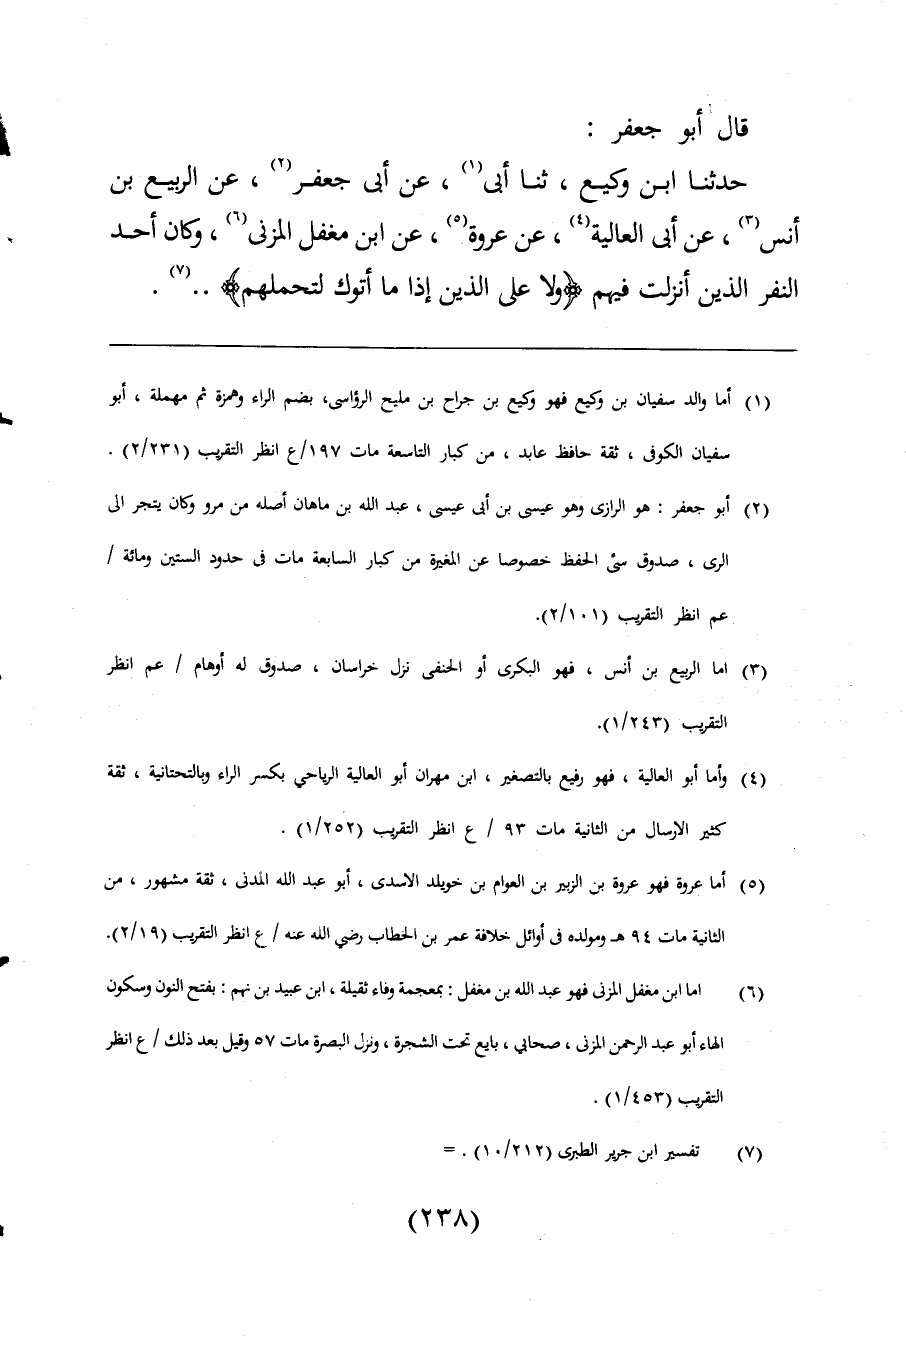 قال أبو جعفر :
حدثنا ابن وكيع ، ثنا أبى(١) ، عن أبى جعفر(٢) ، عن الربيع بن
أنس(٣) ، عن أبى العالية(٤) ، عن عروة(٥) ، عن ابن مغفل المزنى(٦) ، وكان أحد
النفر الذين أنزلت فيهم ﴿ولا على الذين إذا ما أتوك لتحملهم﴾ ..(٧) .
(١) أما والد سفيان بن وكيع فهو وكيع بن جراح بن مليح الرؤاسى، بضم الراء وهمزة ثم مهملة ، أبو
سفيان الكوفى ، ثقة حافظ عابد ، من كبار التاسعة مات ١٩٧/ع انظر التقريب (٢/٢٣١) .
(٢) أبو جعفر : هو الرازى وهو عيسى بن أبى عيسى ، عبد الله بن ماهان أصله من مرو وكان يتجر الى
الرى ، صدوق سئ الحفظ خصوصا عن المغيرة من كبار السابعة مات فى حدود الستين ومائة /
عم انظر التقريب (٢/١٠١).
(٣) اما الربيع بن أنس ، فهو البكرى أو الحنفى نزل خراسان ، صدوق له أوهام / عم انظر
التقريب (١/٢٤٣).
(٤) وأما أبو العالية ، فهو رفيع بالتصغير ، ابن مهران أبو العالية الرياحي بكسر الراء وبالتحتانية ، ثقة
كثير الارسال من الثانية مات ٩٣ / ع انظر التقريب (١/٢٥٢) .
(٥) أما عروة فهو عروة بن الزبير بن العوام بن خويلد الاسدى ، أبو عبد الله المدنى ، ثقة مشهور ، من
الثانية مات ٩٤ هـ ومولده فى أوائل خلافة عمر بن الخطاب رضي الله عنه / ع انظر التقريب (٢/١٩).
(٦) اما ابن مغفل المزنى فهو عبد الله بن مغفل : بمعجمة وفاء ثقيلة ، ابن عبيد بن نهم : بفتح النون وسكون
الهاء أبو عبد الرحمن المزنى ، صحابي ، بايع تحت الشجرة ، ونزل البصرة مات ٥٧ وقيل بعد ذلك / ع انظر
التقريب (١/٤٥٣) .
(٧) تفسير ابن جرير الطبرى (١٠/٢١٢) . =
(٢٣٨)